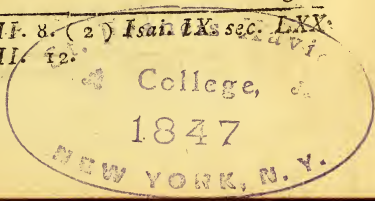 II. 8. (2) Isai. IX. sec. LXX.
II. 12.
College,
1847
NEW YORK, N. Y.